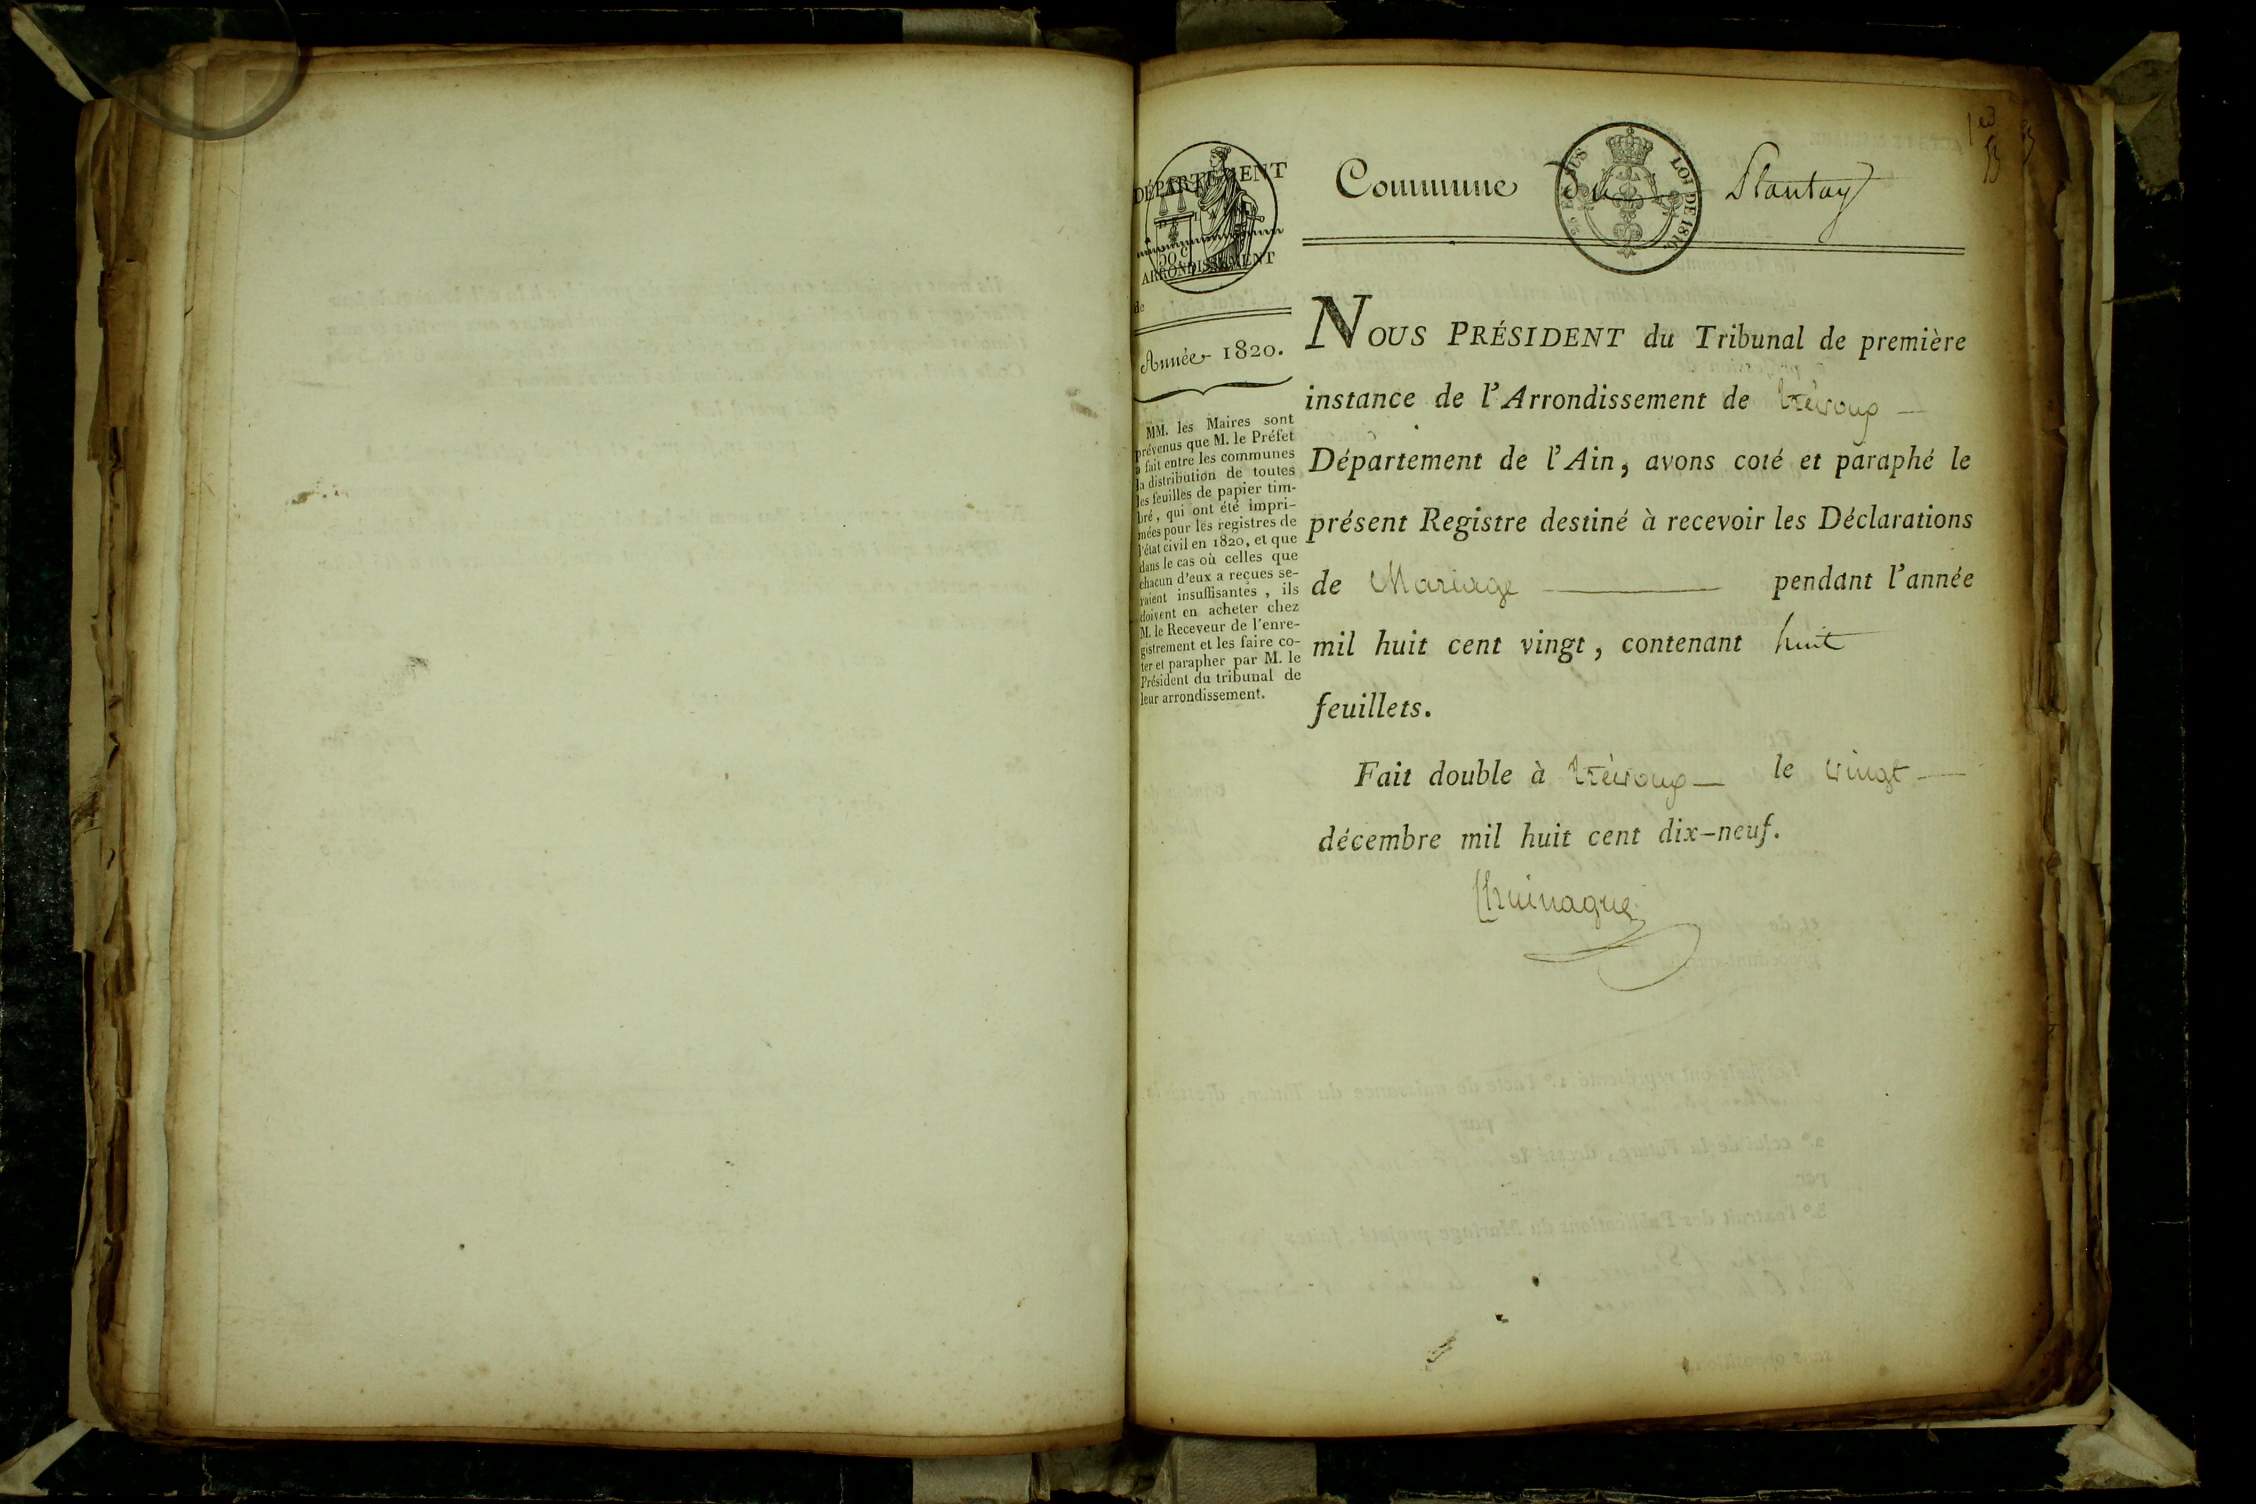 DÉPARTEMENT
DE L'AIN
50 C
ARRONDISSEMENT
de
Année 1820.
MM. les Maires sont
prévenus que M. le Préfet
a fait entre les communes
la distribution de toutes
les feuilles de papier tim-
bré, qui ont été impri-
mées pour les registres de
l'état civil en 1820, et que
dans le cas où celles que
chacun d'eux a reçues se-
raient insuffisantes, ils
doivent en acheter chez
M. le Receveur de l'enre-
gistrement et les faire co-
ter et parapher par M. le
Président du tribunal de
leur arrondissement.
Commune de Plantay
EN SUS LOI DE 1816
1er
NOUS PRÉSIDENT du Tribunal de première
instance de l'Arrondissement de trévoux
Département de l'Ain, avons coté et paraphé le
présent Registre destiné à recevoir les Déclarations
de Mariage pendant l'année
mil huit cent vingt, contenant huit
feuillets.
Fait double à trévoux le vingt
décembre mil huit cent dix-neuf.